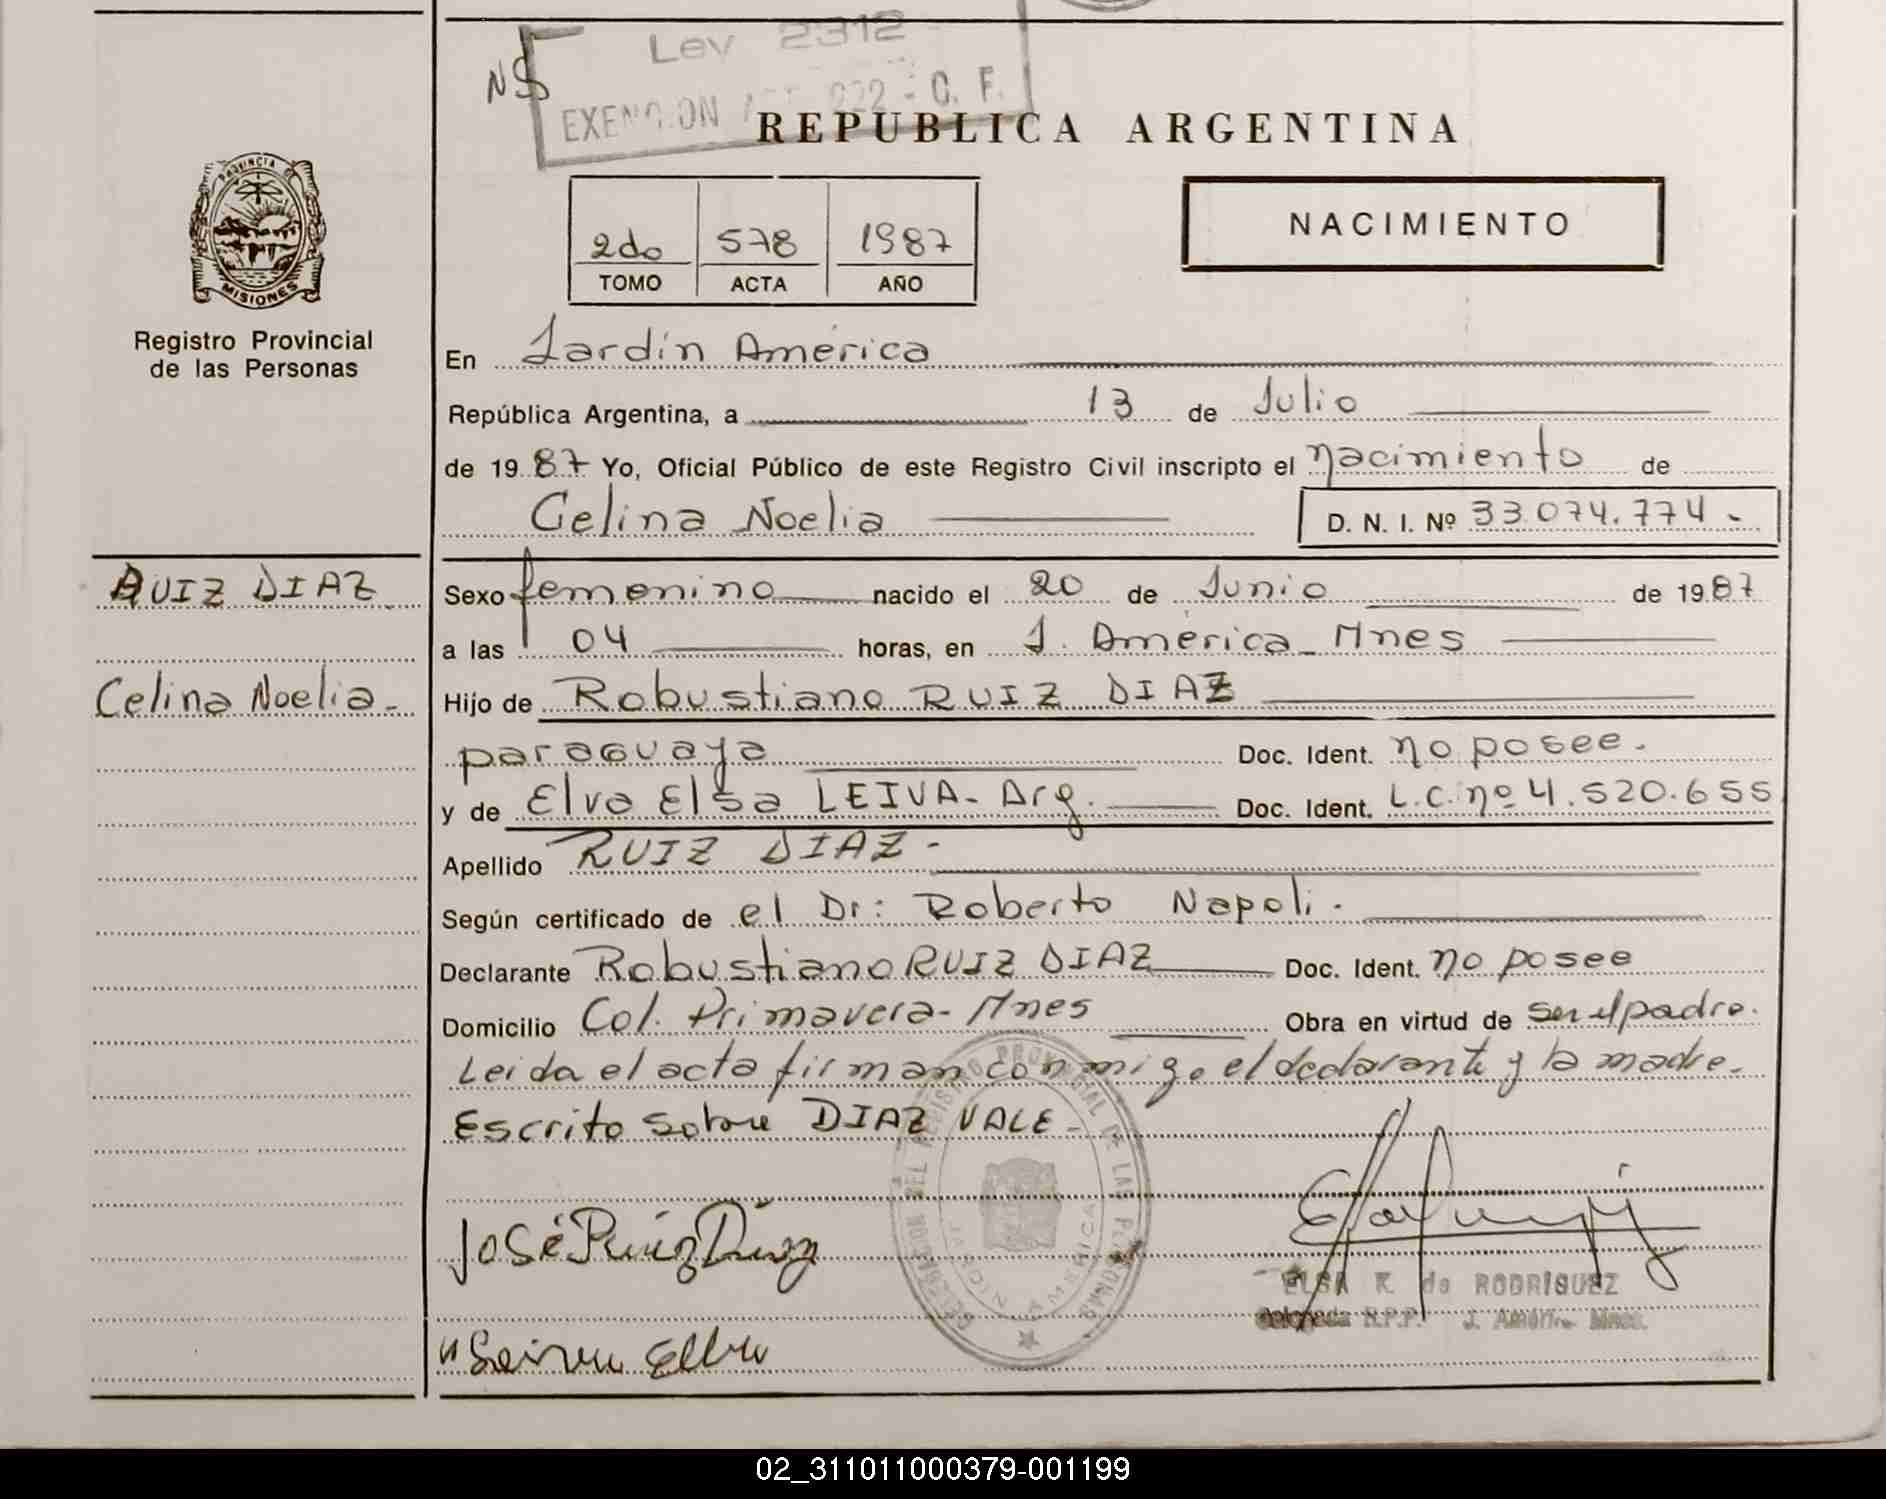 Ley 2312
NS
EXENCION ART 222 - C. F.
REPUBLICA ARGENTINA
PROVINCIA DE
MISIONES
Registro Provincial
de las Personas
NACIMIENTO
2do 578 1987
TOMO ACTA AÑO
En Jardín América
República Argentina, a 13 de Julio
de 1987 Yo, Oficial Público de este Registro Civil inscripto el nacimiento de
Celina Noelia D. N. I. Nº 33.074.774.-
RUIZ DIAZ
Celina Noelia.-
Sexo femenino nacido el 20 de Junio de 1987
a las 04 horas, en J. América - Mnes
Hijo de Robustiano RUIZ DIAZ
paraguaya Doc. Ident. no posee.
y de Elva Elsa LEIVA - Arg. Doc. Ident. L.C. nº 4.520.655
Apellido RUIZ DIAZ.-
Según certificado de el Dr: Roberto Napoli.
Declarante Robustiano RUIZ DIAZ Doc. Ident. no posee
Domicilio Col. Primavera - Mnes Obra en virtud de ser el padre.
Leida el acta firman conmigo el declarante y la madre.
Escrito sobre DIAZ VALE -
José Ruiz Díaz
DEL REGISTRO PROVINCIAL DE LAS PERSONAS
JARDIN AMERICA
ELSA K. de RODRÍGUEZ
Delegada R.P.P. J. América Mnes.
Leiva Elba
02_311011000379-001199